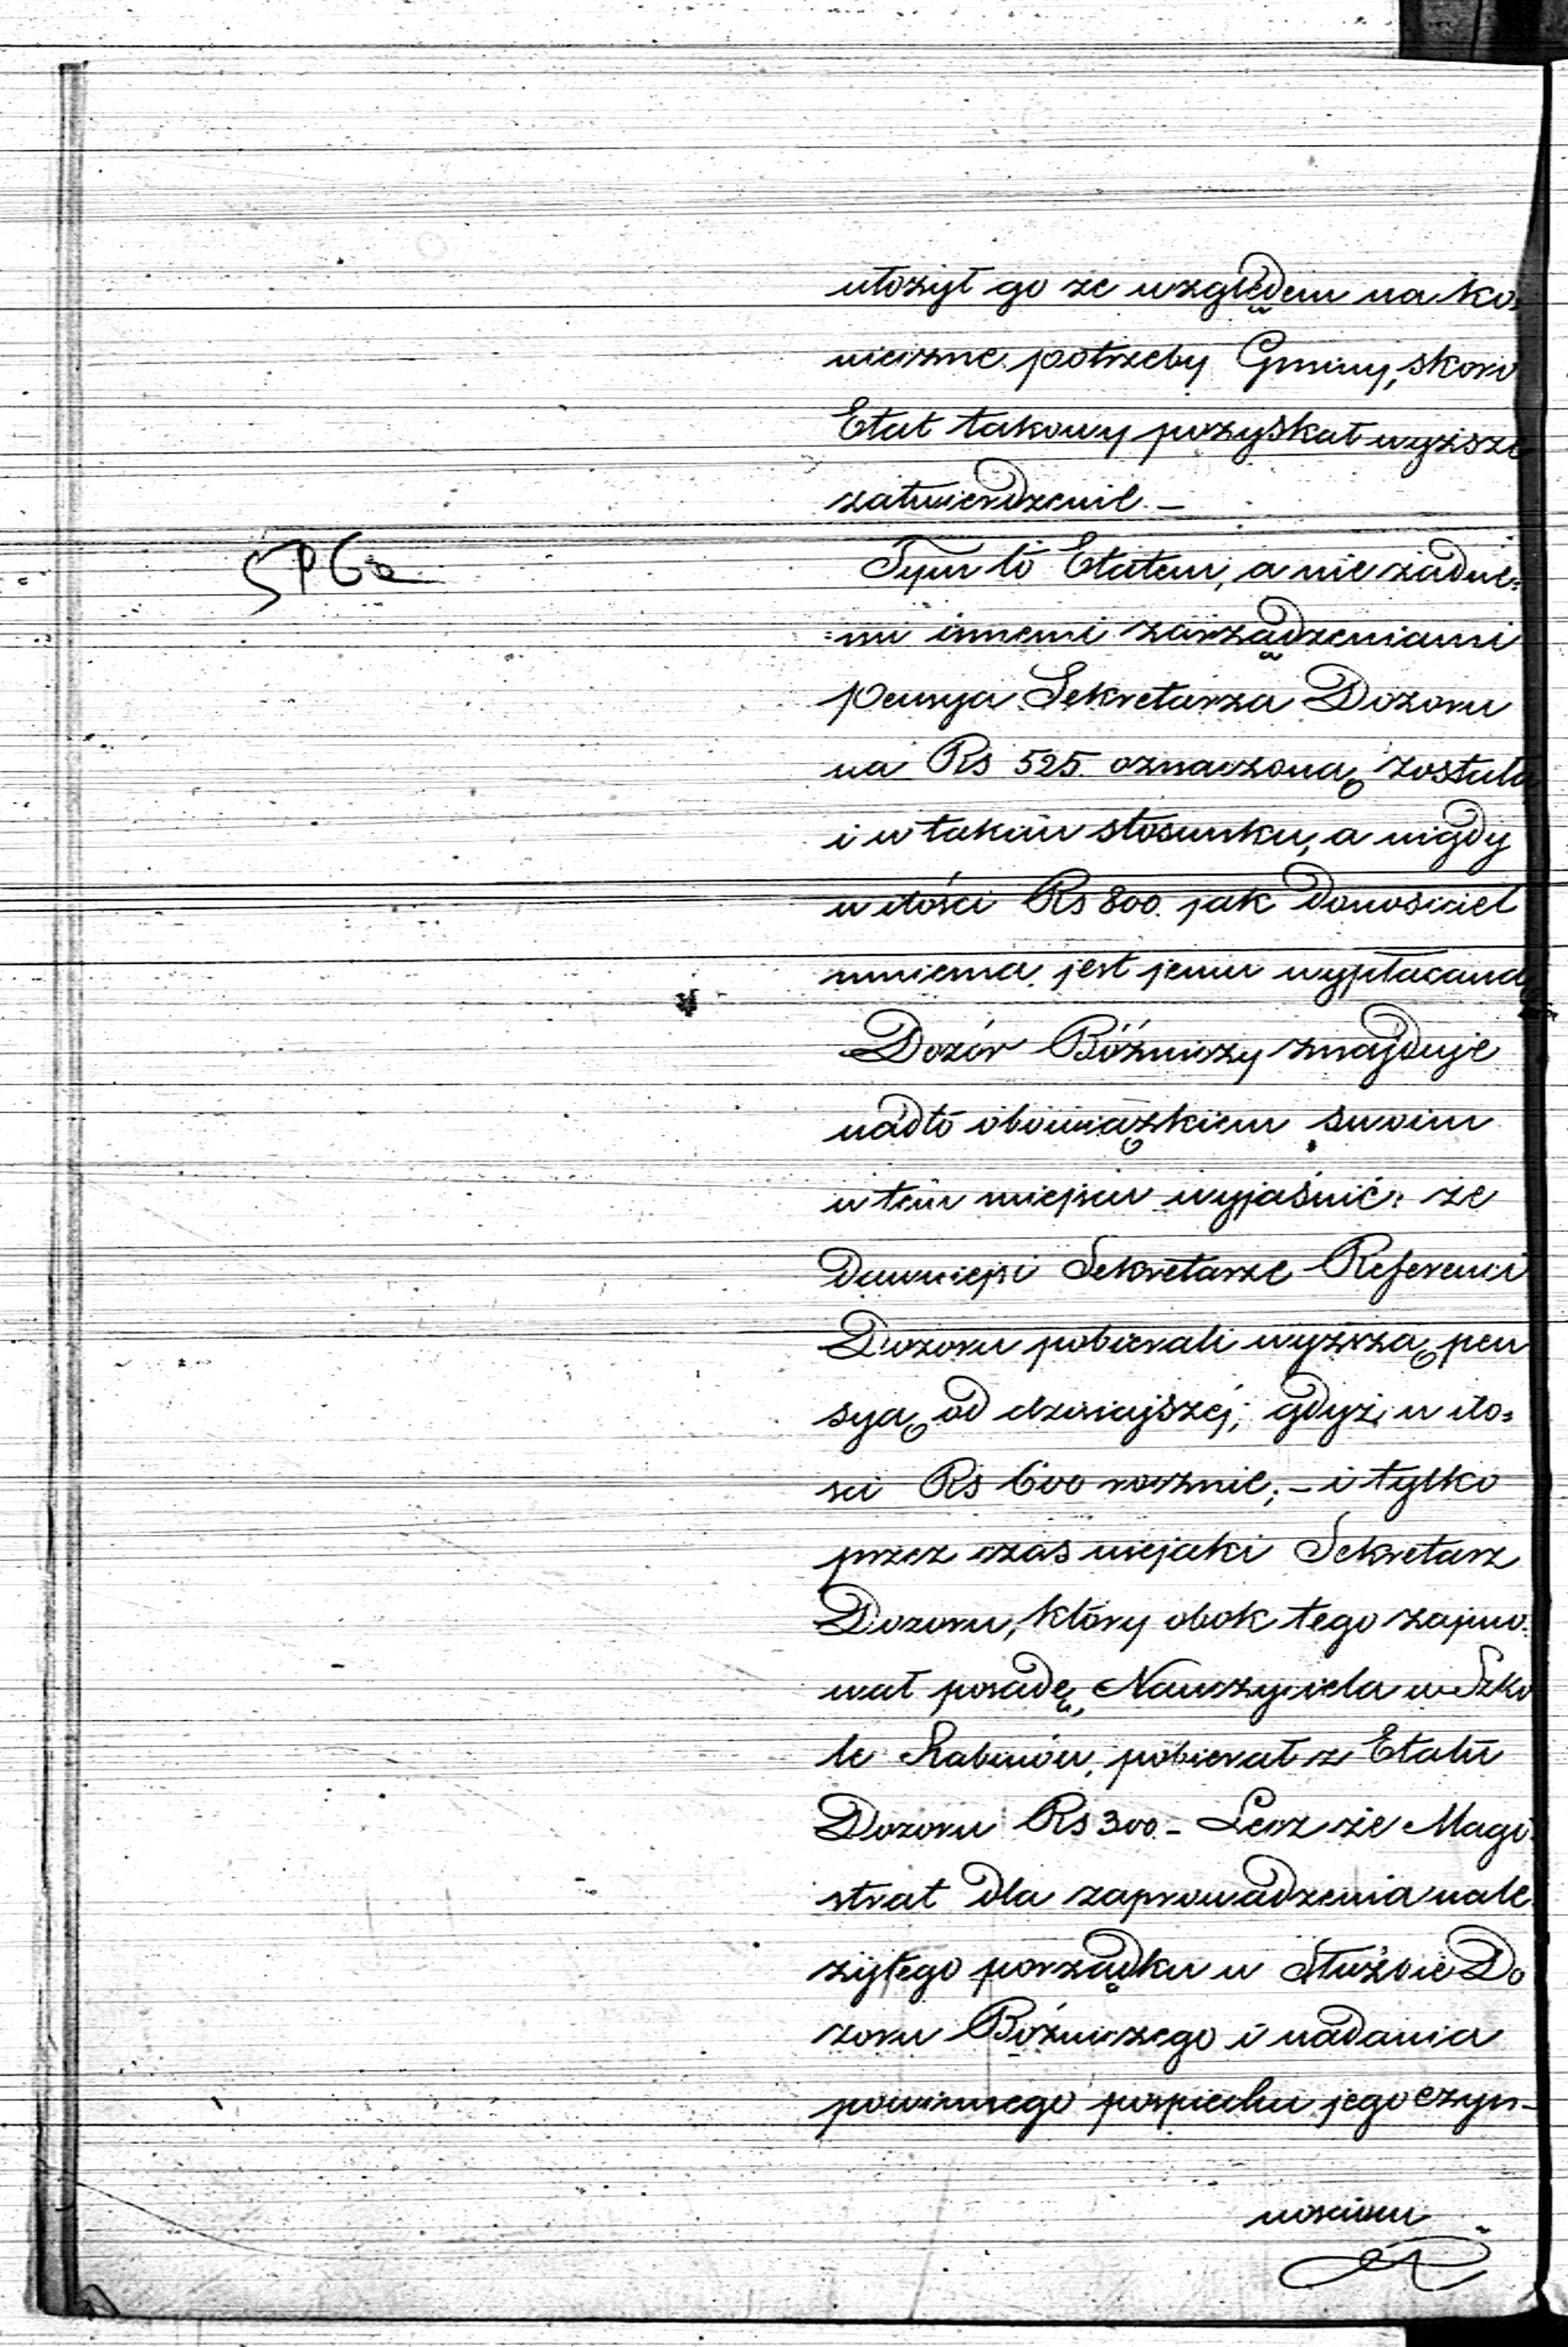 ułożył go ze względem na ko-
nieczne potrzeby Gminy, skoro
Etat takowy pozyskał wyższe
zatwierdzenie. —
Tym to Etatem, a nie żadne=
=mi innemi zarządzeniami
pensya Sekretarza Dozoru
na Rs 525. oznaczoną została
i w takim stosunku, a nigdy
w ilości Rs 800. jak Donosiciel
mniema jest jemu wypłacaną
Dozór Bóźniczy znajduje
nadto obowiązkiem swoim
w tem miejscu wyjaśnić: że
dawniejsi Sekretarze Referenci
Dozoru pobierali wyższą pen
syą od dzisiajszéj; gdyż w ilo=
ści Rs 600 rocznie; – i tylko
przez czas niejaki Sekretarz
Dozoru, który obok tego zajmo-
wał posadę Nauczyciela w Szko
le Rabinów, pobierał z Etatu
Dozoru Rs 300. – Lecz że Magi-
strat dla zaprowadzenia nale
żytego porządku w Służbie Do
zoru Bóźniczego i nadania
powinnego pospiechu jego czyn-
nościom